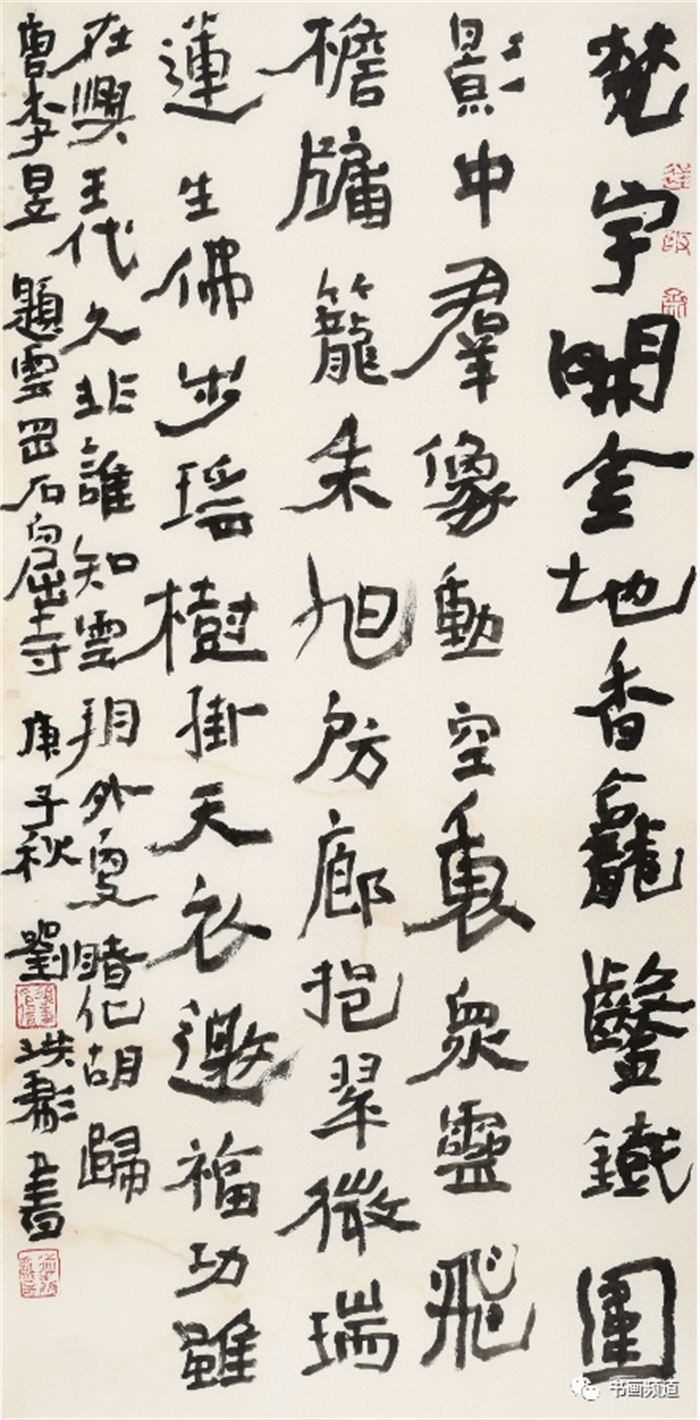 梵宇開金地香龕鑿鐵圍
影中羣像動空裏眾靈飛
檐牖籠朱旭房廊抱翠微瑞
蓮生佛步瑤樹掛天衣邀福功雖
在興王代久非誰知雲朔外更睹化胡歸
唐李昱 題雲岡石窟寺 庚子秋 劉洪彪書
书画频道